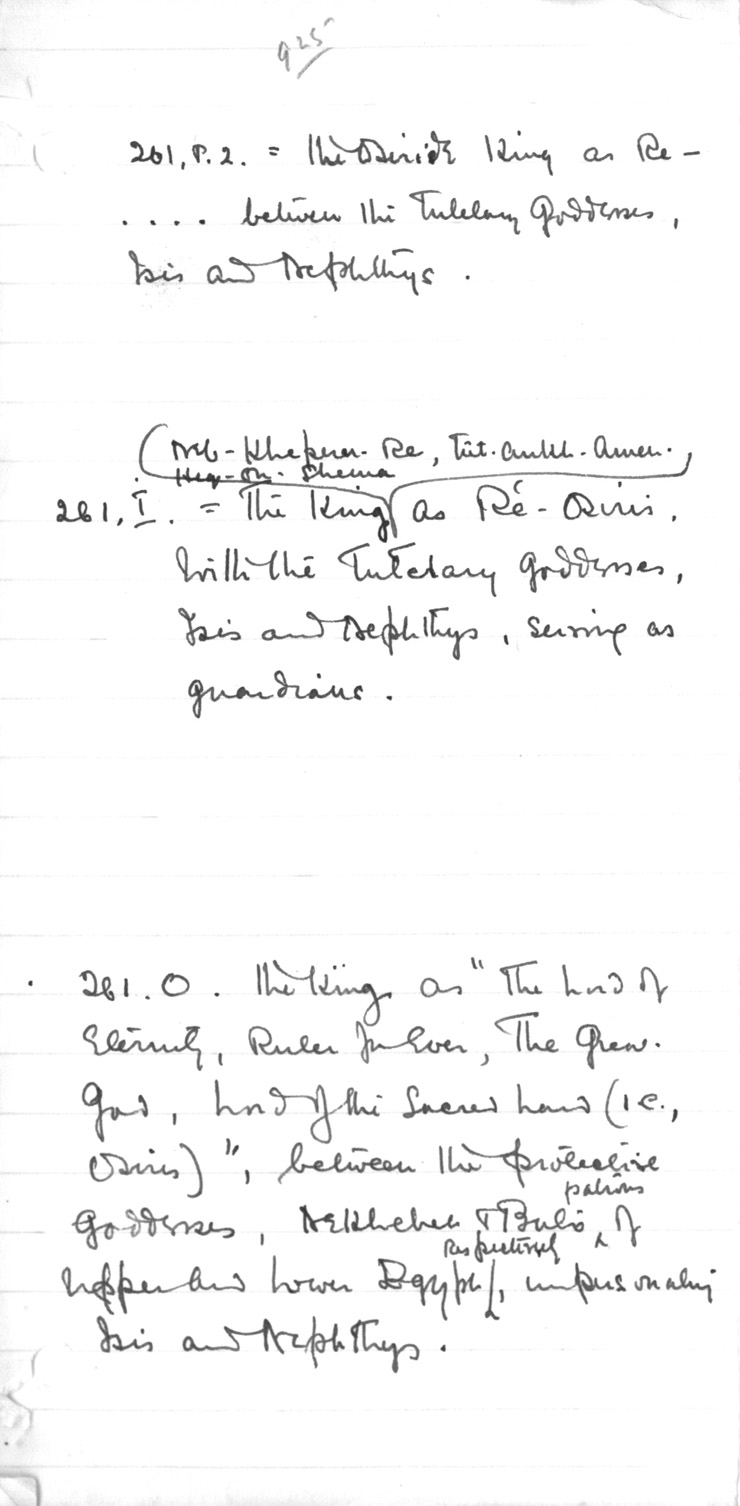 925
261, P. 2. = The Osiride King as Re -
. . . . between the Tutelary Goddesses,
Isis and Nephthys .
(Neb-Kheperu-Re, Tut.ankh-Amen.,
Heq-On-Shema
261, I. = The King as Ré-Osiris,
with the Tutelary Goddesses,
Isis and Nephthys, serving as
guardians .
261. O . The King, as "The Lord of
Eternity, Ruler for Ever, The Great
God, Lord of the Sacred Land (i.e.,
Osiris)", between the protective
patrons
Goddesses, Nekhebet & Buto, of
respectively
Upper and Lower Egypt, impersonating
Isis and Nephthys .